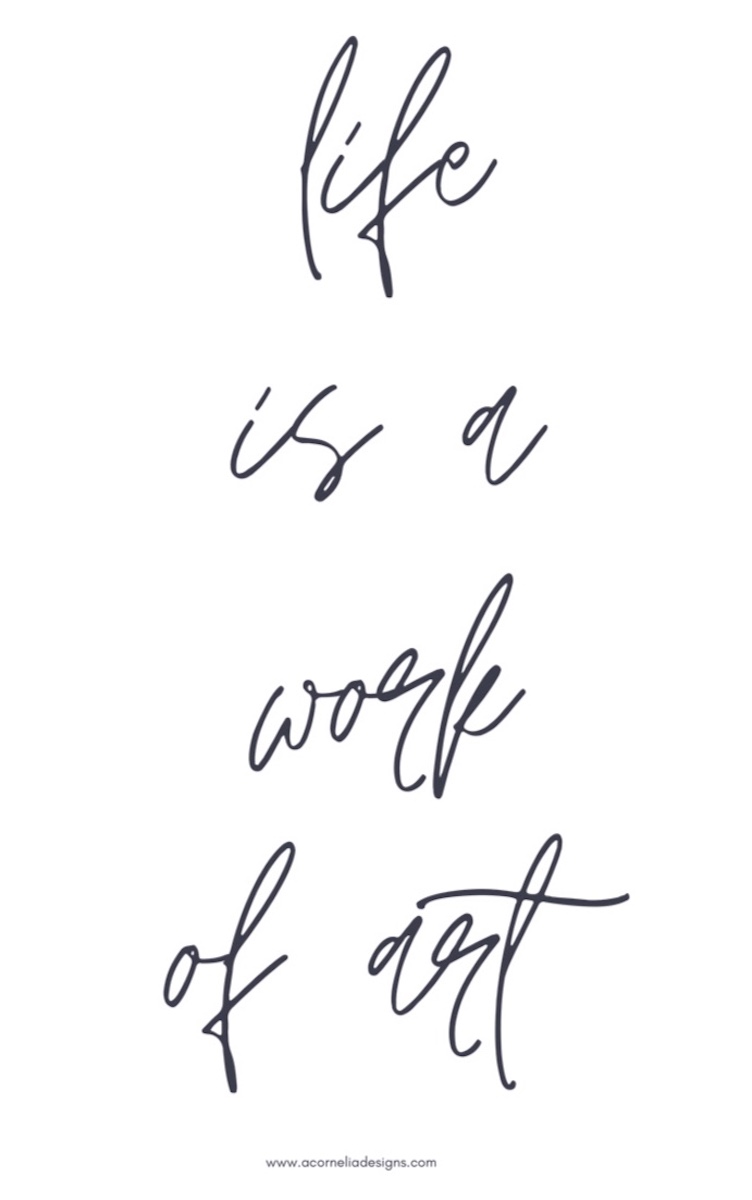 life
is a
work
of art
www.acorneliadesigns.com